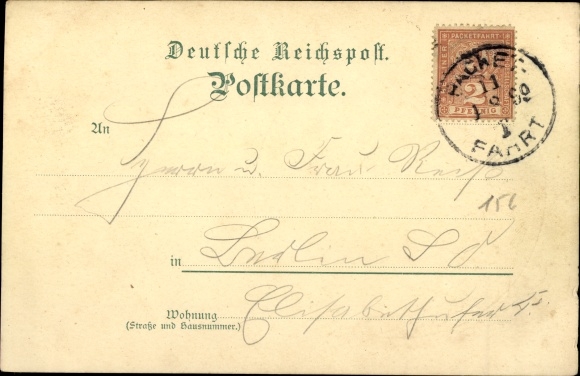 Deutsche Reichspost.
Postkarte.
PACKETFAHRT
2
PFENNIG
PACKET-
11
FAHRT
An
Herrn u. Frau Reiß
156
in Berlin S O
Wohnung
(Straße und Hausnummer.)
Elisabethufer